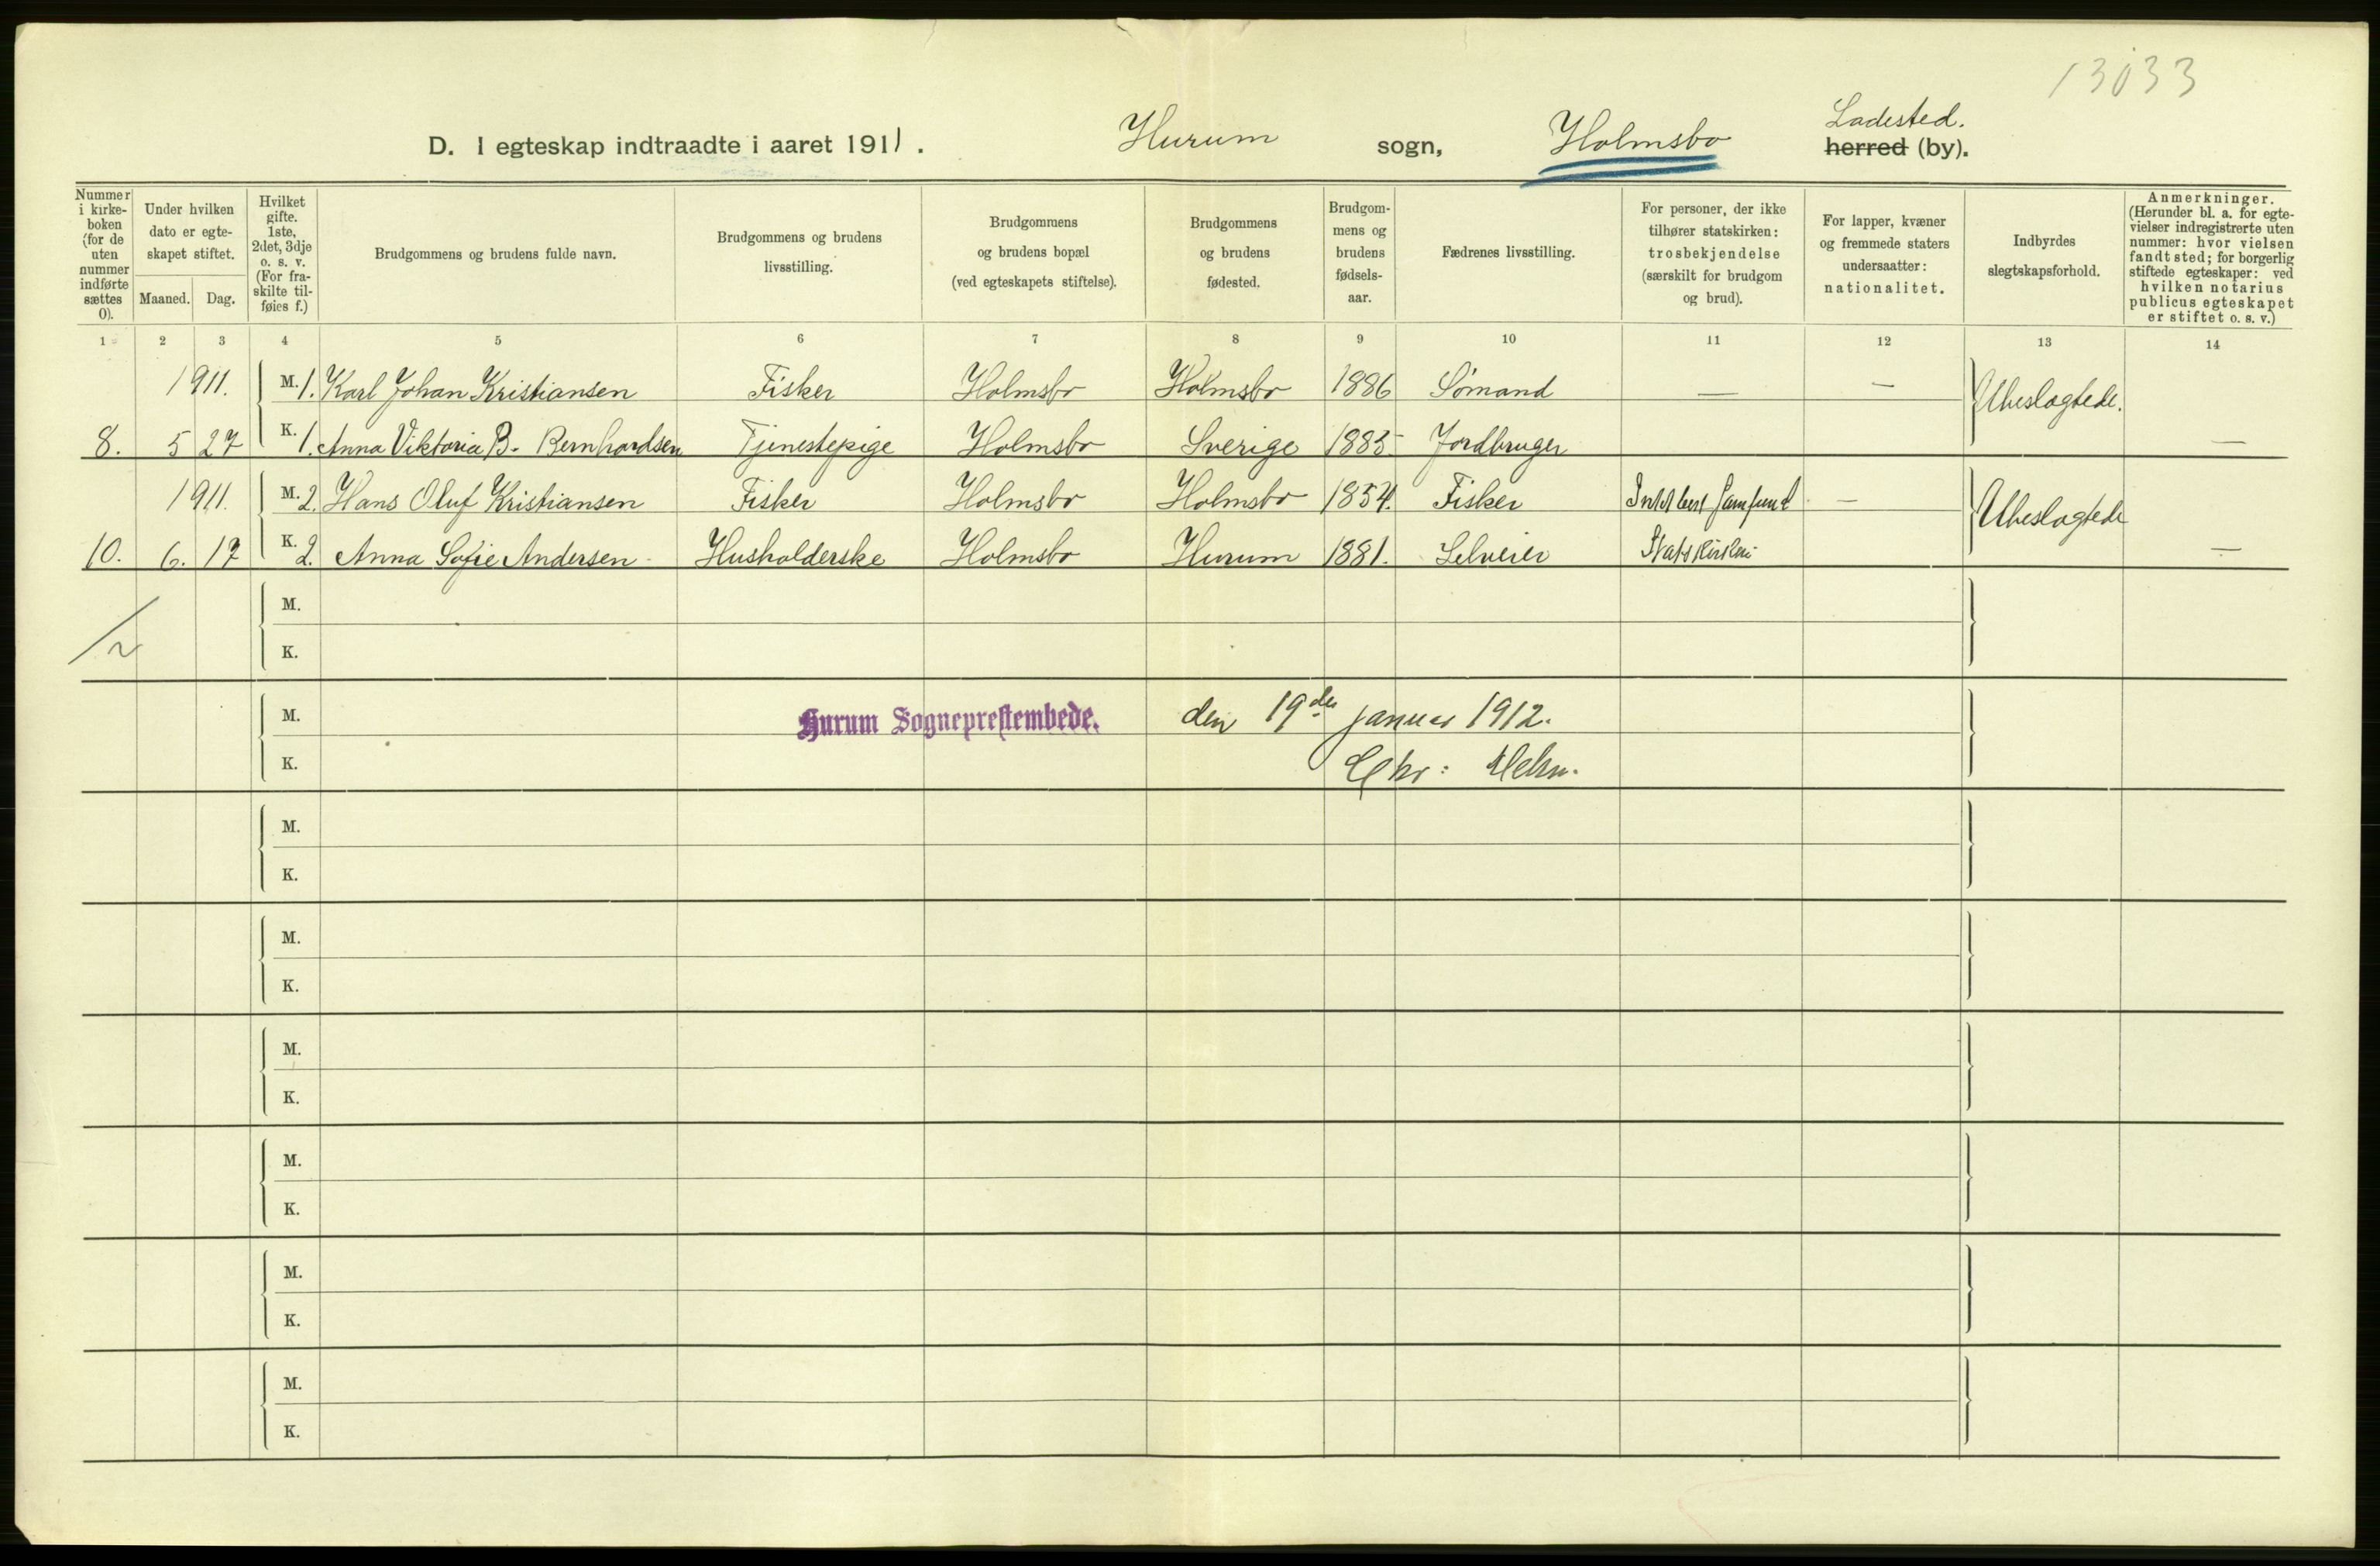 13033
D. I egteskap indtraadte i aaret 1911. Hurum sogn, Holmsbo Ladested. herred (by).
Nummer i kirkeboken (for de uten nummer indførte sættes 0).
Under hvilken dato er egteskapet stiftet.
Maaned. Dag.
Hvilket gifte. 1ste, 2det, 3dje o. s. v. (For fraskilte tilføies f.)
Brudgommens og brudens fulde navn.
Brudgommens og brudens livsstilling.
Brudgommens og brudens bopæl (ved egteskapets stiftelse).
Brudgommens og brudens fødested.
Brudgommens og brudens fødselsaar.
Fædrenes livsstilling.
For personer, der ikke tilhører statskirken: trosbekjendelse (særskilt for brudgom og brud).
For lapper, kvæner og fremmede staters undersaatter: nationalitet.
Indbyrdes slegtskapsforhold.
Anmerkninger. (Herunder bl. a. for egtevielser indregistrerte uten nummer: hvor vielsen fandt sted; for borgerlig stiftede egteskaper: ved hvilken notarius publicus egteskapet er stiftet o. s. v.)
1 2 3 4 5 6 7 8 9 10 11 12 13 14
1911. M. 1. Karl Johan Kristiansen Fisker Holmsbo Holmsbo 1886 Sømand — — Ubeslagtede.
8. 5 27 K. 1. Anna Viktoria B. Bernhardsen Tjenestepige Holmsbo Sverige 1885 Jordbruger —
1911. M. 2. Hans Oluf Kristiansen Fisker Holmsbo Holmsbo 1854. Fisker samfund — Ubeslagtede
10. 6. 17 K. 2. Anna Sofie Andersen Husholderske Holmsbo Hurum 1881. Selveier Statskirken —
M.
K.
2
M. Hurum Sogneprestembede. den 19de januar 1912.
K. Chr:
M.
K.
M.
K.
M.
K.
M.
K.
M.
K.
M.
K.